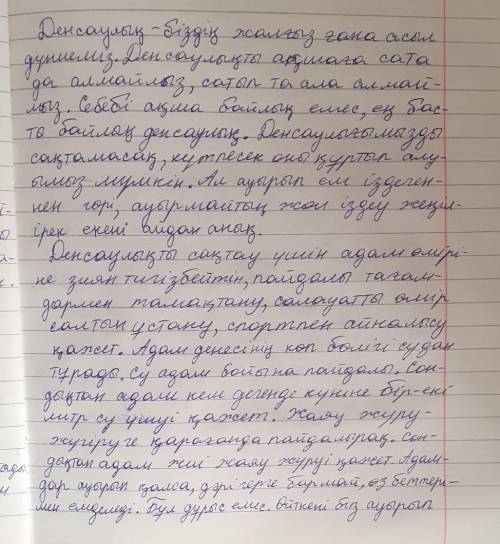 Денсаулық - біздің жалғыз ғана асыл
дүниеміз. Денсаулықты ақшаға сата
да алмаймыз, сатып та ала алмай-
мыз. Себебі ақша байлық емес, ең бас-
ты байлық денсаулық. Денсаулығымызды
сақтамасақ, күтпесек оны құртып алу-
ымыз мүмкін. Ал ауырып ем іздеген-
нен гөрі, ауырмайтың жол іздеу жеңіл-
ірек екені айдан анық.
Денсаулықты сақтау үшін адам өмірі-
не зиян тигізбейтін, пайдалы тағам-
дармен тамақтану, салауатты өмір
салтын ұстану, спортпен айналысу
қажет. Адам денесінің көп бөлігі судан
тұрады. Су адам бойына пайдалы. Сон-
дықтан адам кем дегенде күніне бір-екі
литр су ішуі қажет. Жаяу жүру -
жүгіруге қарағанда пайдалырақ. Сон-
дықтан адам жиі жаяу жүруі қажет. Адам-
дар ауырып қалса, дәрігерге бармай, өз беттері-
мен емделеді. Бұл дұрыс емес. Өйткені біз ауырып